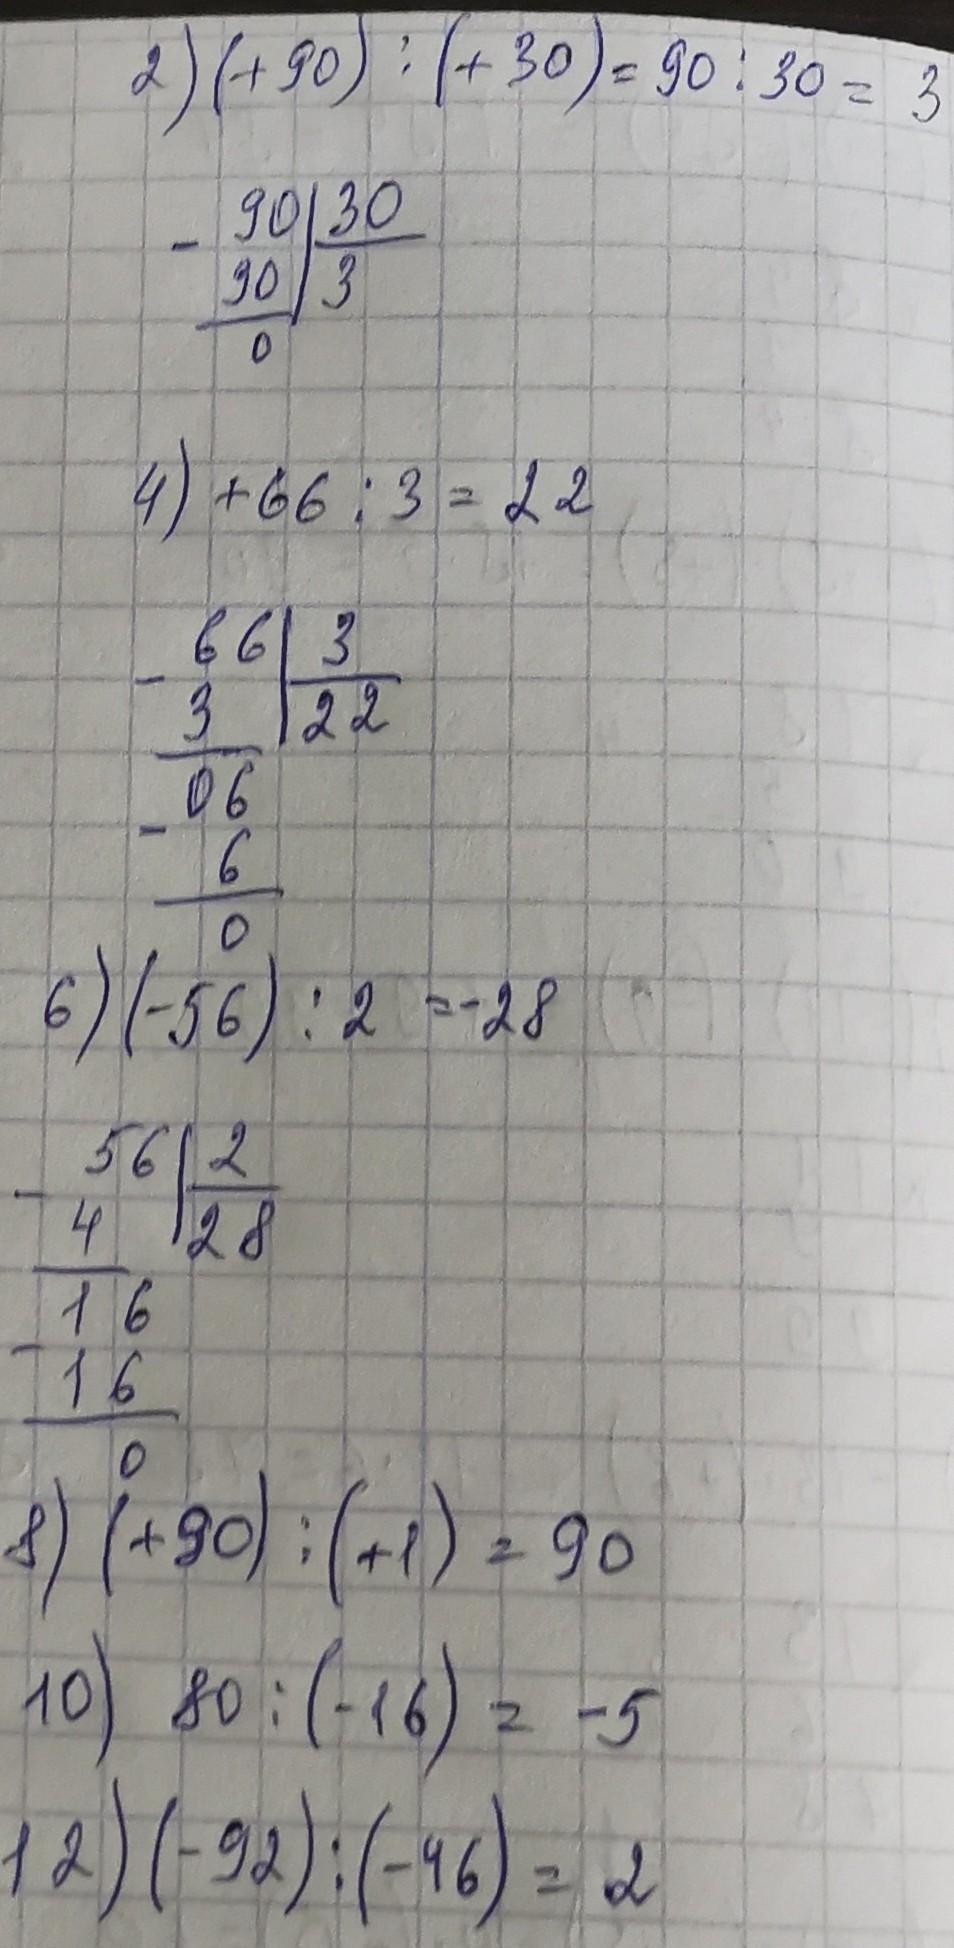 2) (+90) : (+30) = 90 : 30 = 3
- 90 | 30
90 | 3
0
4) +66 : 3 = 22
- 66 | 3
3 | 22
06
- 6
0
6) (-56) : 2 = -28
- 56 | 2
4 | 28
16
- 16
0
8) (+90) : (+1) = 90
10) 80 : (-16) = -5
12) (-92) : (-46) = 2